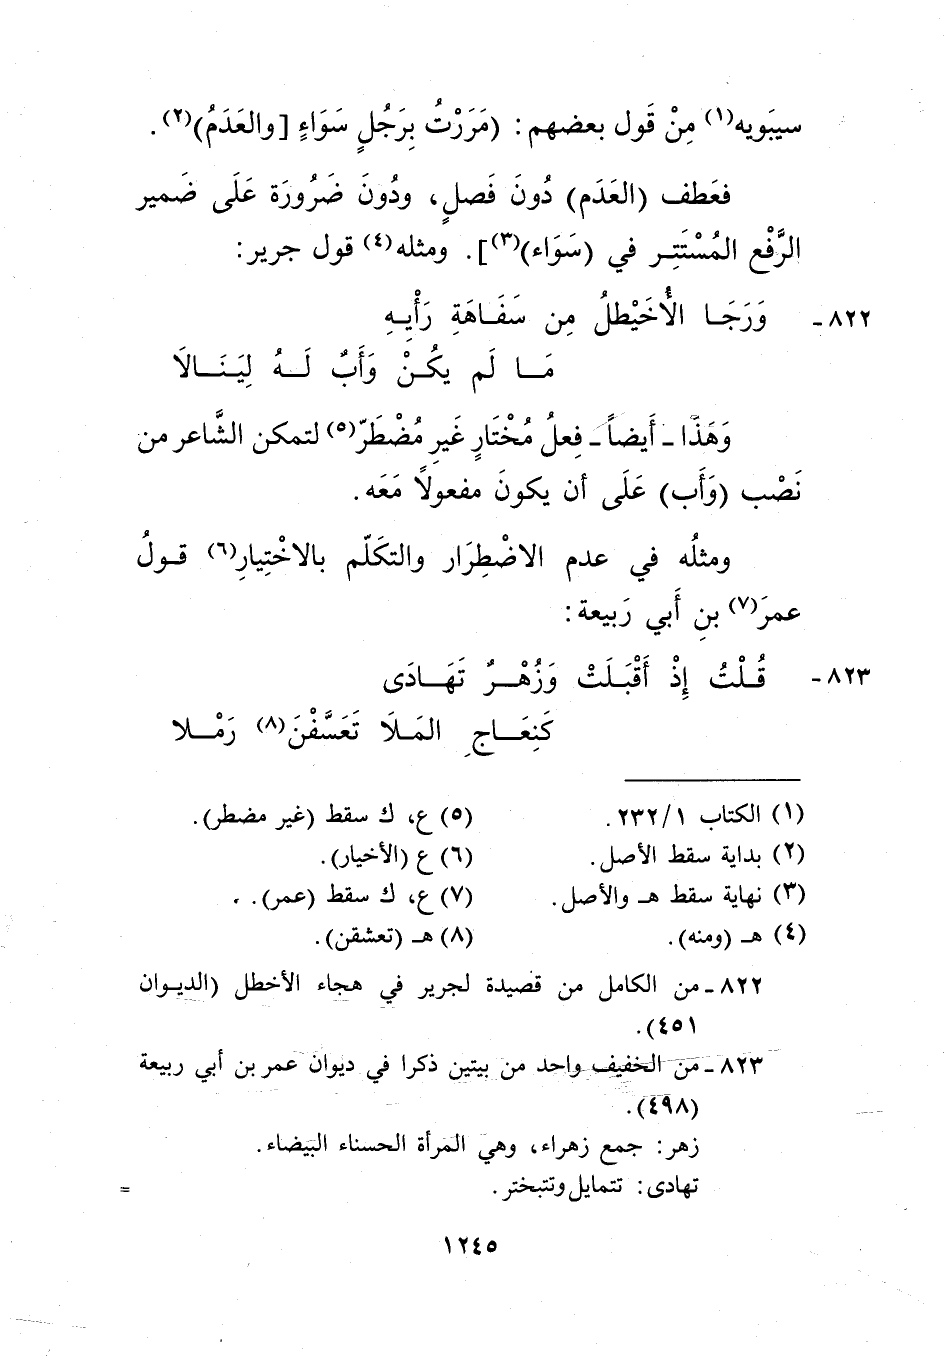 سيبَويه(١) مِنْ قَول بعضهم: (مَرَرْتُ بِرَجُلٍ سَوَاءٍ [والعَدَمُ)(٢).
فعَطف (العَدَم) دُونَ فَصلٍ، ودُونَ ضَرُورَة عَلَى ضَمير
الرَّفْع المُسْتَتِر في (سَوَاء)(٣)]. ومثله(٤) قول جرير:
٨٢٢- وَرَجَا الأُخَيْطلُ مِن سَفَاهَةِ رَأْيِهِ
مَا لَم يكُنْ وَأَبٌ لَهُ لِيَنَالاَ
وَهَذَا - أَيضاً - فِعلُ مُخْتَارٍ غَيرِ مُضْطَرّ(٥) لتمكن الشَّاعر من
نَصْب (وَأَب) عَلَى أن يكونَ مفعولاً مَعَه.
ومثلُه في عدم الاضْطِرَار والتكَلّم بالاخْتِيارِ(٦) قولُ
عمرَ(٧) بنِ أَبي رَبيعة:
٨٢٣- قُلْتُ إِذْ أَقْبَلَتْ وَزُهْرٌ تَهَادَى
كَنِعَاجِ المَلَا تَعَسَّفْنَ(٨) رَمْلا
(١) الكتاب ١/ ٢٣٢.
(٢) بداية سقط الأصل.
(٣) نهاية سقط هـ والأصل.
(٤) هـ (ومنه).
(٥) ع، ك سقط (غير مضطر).
(٦) ع (الأخيار).
(٧) ع، ك سقط (عمر).
(٨) هـ (تعشقن).
٨٢٢ - من الكامل من قصيدة لجرير في هجاء الأخطل (الديوان
٤٥١).
٨٢٣ - من الخفيف واحد من بيتين ذكرا في ديوان عمر بن أبي ربيعة
(٤٩٨).
زهر: جمع زهراء، وهي المرأة الحسناء البيضاء.
تهادى: تتمايل وتتبختر.
=
١٢٤٥